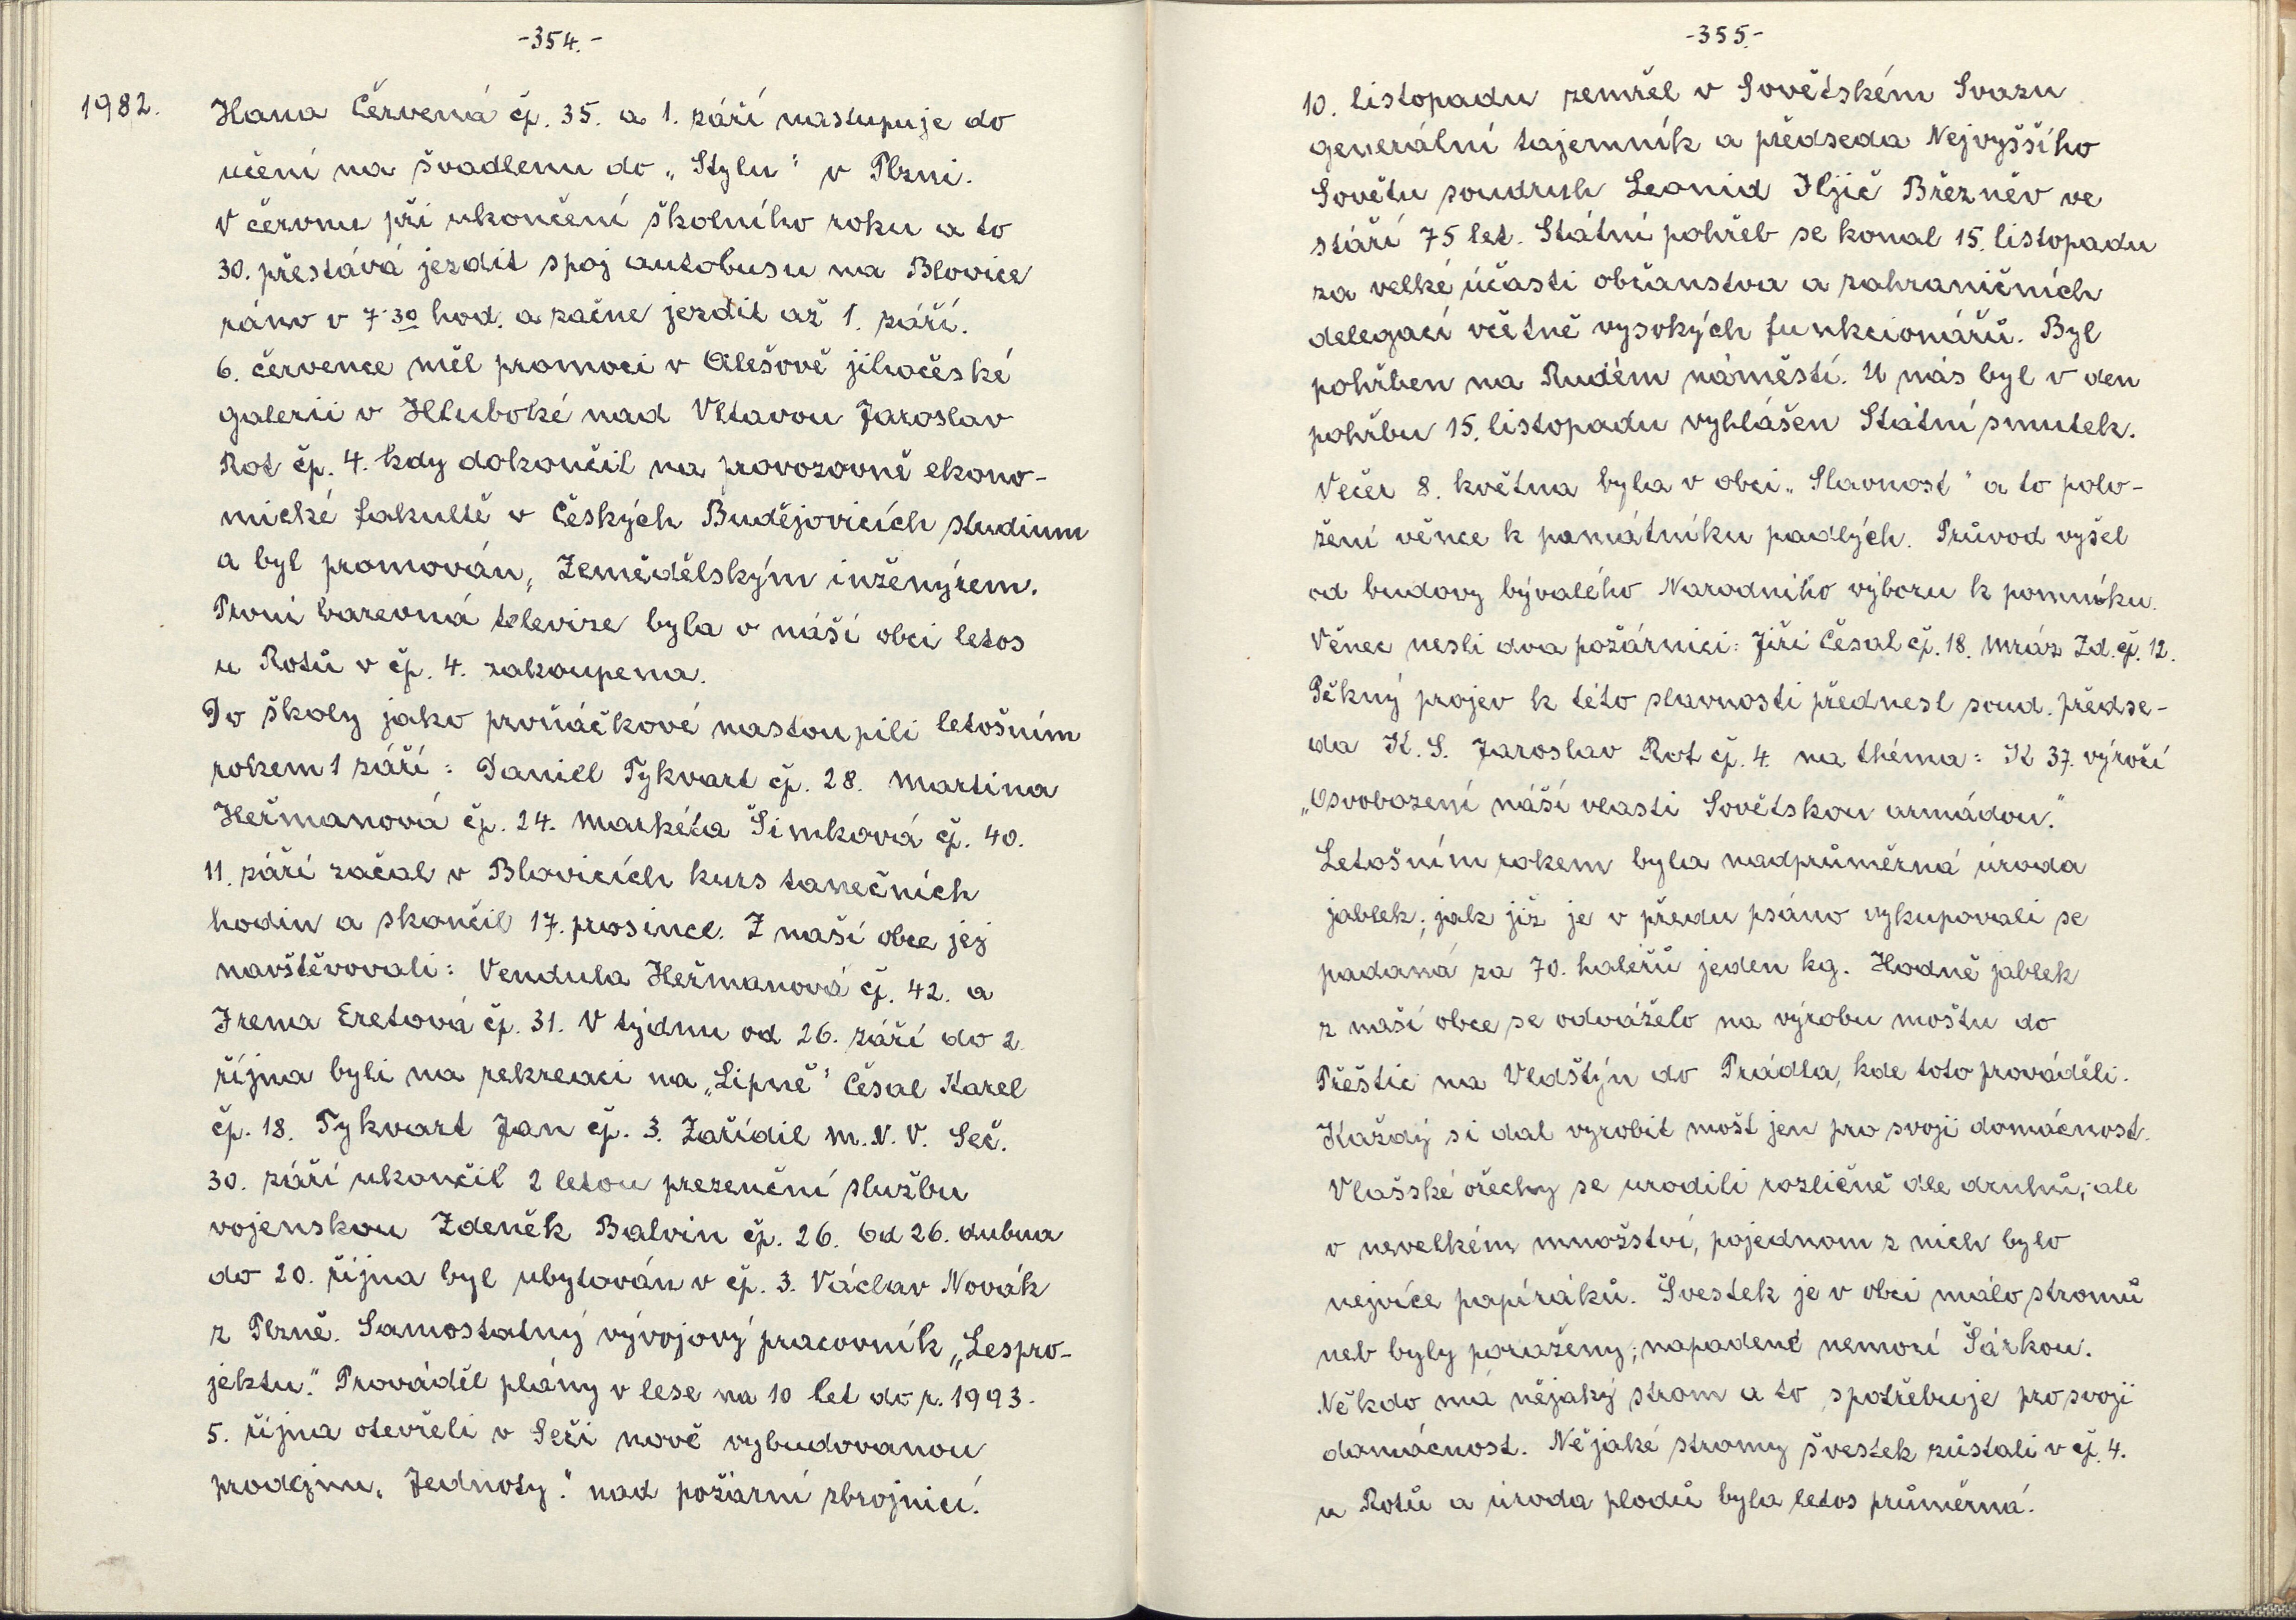 -354.-
1982.
Hana Červená čp. 35. a 1. září nastupuje do
učení na švadlenu do „Stylu" v Plzni.
V červnu při ukončení školního roku a to
30. přestává jezdit spoj autobusu na Blovice
ráno v 7·30 hod. a začne jezdit až 1. září.
6. července měl promoci v Alešově jihočeské
galerii v Hluboké nad Vltavou Jaroslav
Rot čp. 4. kdy dokončil na provozovně ekono-
mické fakultě v Českých Budějovicích studium
a byl promován, Zemědělským inženýrem.
První barevná televize byla v náší obci letos
u Rotů v čp. 4. zakoupena.
Do školy jako prvňáčkové nastoupili letošním
rokem 1 září: Daniel Tykvart čp. 28. Martina
Heřmanová čp. 24. Markéta Šimková čp. 40.
11. září začal v Blovicích kurs tanečních
hodin a skončil 17. prosince. Z naší obce jej
navštěvovali: Vendula Heřmanová čp. 42. a
Irena Eretová čp. 31. V týdnu od 26. září do 2.
října byli na rekreaci na „Lipně" Česal Karel
čp. 18. Tykvart Jan čp. 3. Zařídil M.N.V. Seč.
30. září ukončil 2 letou prezenční službu
vojenskou Zdeněk Balvin čp. 26. Od 26. dubna
do 20. října byl ubytován v čp. 3. Václav Novák
z Plzně. Samostatný vývojový pracovník „Lespro-
jektu." Prováděl plány v lese na 10 let do r. 1993.
5. října otevřeli v Seči nově vybudovanou
prodejnu „Jednoty." nad požární zbrojnicí.
-355.-
10. listopadu zemřel v Sovětském Svazu
generální tajemník a předseda Nejvyššího
Sovětu soudruh Leonid Iljič Brěžněv ve
stáří 75 let. Státní pohřeb se konal 15. listopadu
za velké účasti občanstva a zahraničních
delegací včetně vysokých funkcionářů. Byl
pohřben na Rudém náměstí. U nás byl v den
pohřbu 15. listopadu vyhlášen Státní smutek.
Večer 8. května byla v obci „Slavnost" a to polo-
žení věnce k památníku padlých. Průvod vyšel
od budovy bývalého Narodního výboru k pomníku.
Věnec nesli dva požárnici: Jiří Česal čp. 18. Mráz Zd. čp. 12.
Pěkný projev k této slavnosti přednesl soud. předse-
da K.S. Jaroslav Rot čp. 4. na théma: K 37. výročí
„Osvobození náší vlasti Sovětskou armádou."
Letošním rokem byla nadprůměrná úroda
jablek; jak již je v předu psáno vykupovali se
padaná za 70. haleřů jeden kg. Hodně jablek
z naší obce se odváželo na výrobu moštu do
Přeštic na Vldštýn do Prádla, kde toto prováděli.
Každý si dal vyrobit mošt jen pro svoji domácnost.
Vlašské ořechy se urodili rozličně dle druhů; ale
v nevelkém množství, pojednom z nich bylo
nejvíce papíráků. Švestek je v obci málo stromů
neb byly poraženy; napadené nemocí Šárkou.
Někdo má nějaký strom a to spotřebuje pro svoji
domácnost. Nějaké stromy švestek zůstali v čp. 4.
u Rotů a úroda plodů byla letos průměrná.